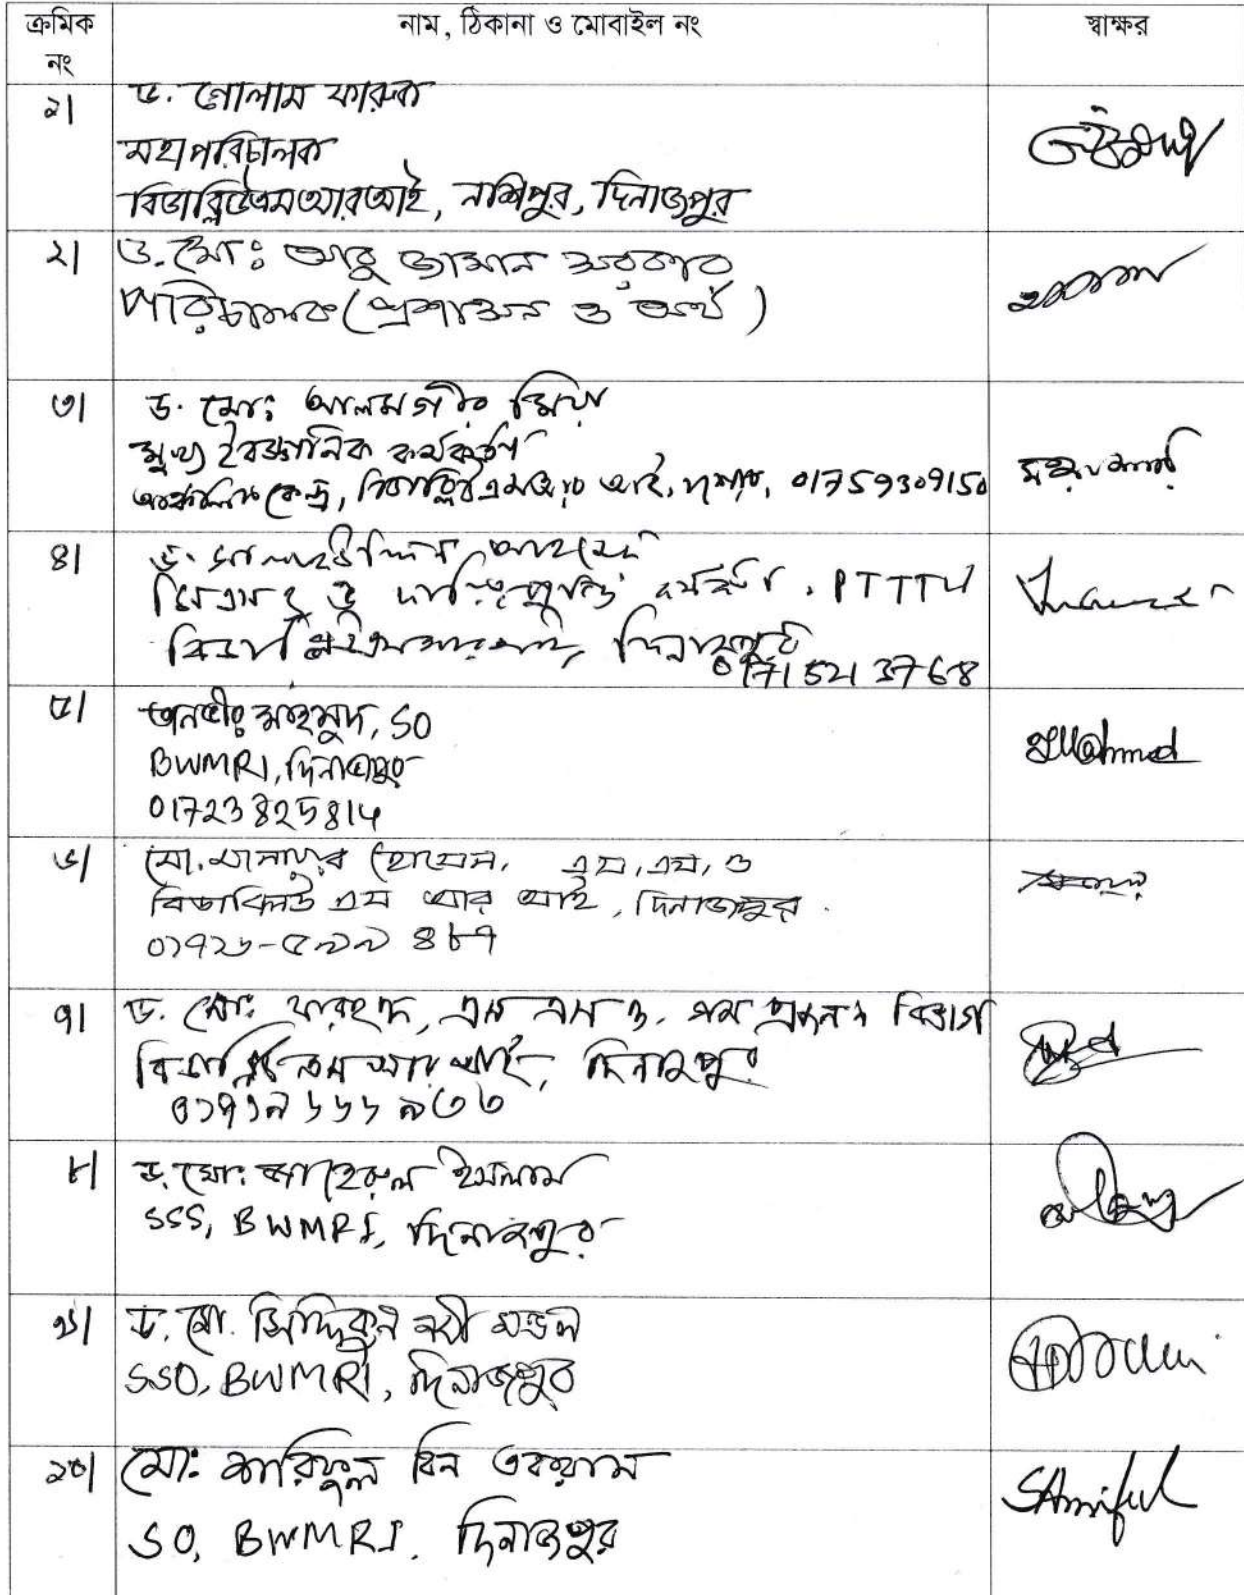 ক্রমিক নং নাম, ঠিকানা ও মোবাইল নং স্বাক্ষর
১| ড. গোলাম ফারুক
মহাপরিচালক
বিডাব্লিউএমআরআই, নশিপুর, দিনাজপুর
২| ড. মোঃ আবু জামান সরকার
পরিচালক (প্রশাসন ও অর্থ)
৩| ড. মোঃ আলমগীর মিয়া
মুখ্য বৈজ্ঞানিক কর্মকর্তা
আঞ্চলিক কেন্দ্র, বিডাব্লিউএমআর আই, 01759309150
৪| ড. আহমেদ
ও কর্মকর্তা, PTTTU
দিনাজপুর
01715213768
৫| তানভীর মাহমুদ, SO
BWMRI, দিনাজপুর
01723825814
Mahmud
৬| মো. মানাযুর হোসেন, এস, এস, ও
বিডাব্লিউ এম আর আই, দিনাজপুর.
০১৭২৬-৫৯৯ ৪৮৭
৭| ড. মোঃ ফরহাদ, এস এস ও, বিভাগ
বিডাব্লিউ এম আর আই, দিনাজপুর
০১৭১৯ ৬৬৬ ৯৩৩
৮| ড. মোঃ জাহেরুল ইসলাম
SSS, BWMRI, দিনাজপুর
৯| ড. মো. সিদ্দিকুন নবী মন্ডল
SSO, BWMRI, দিনাজপুর
১০| মোঃ শরিফুল বিন একরাম
SO, BWMRI. দিনাজপুর